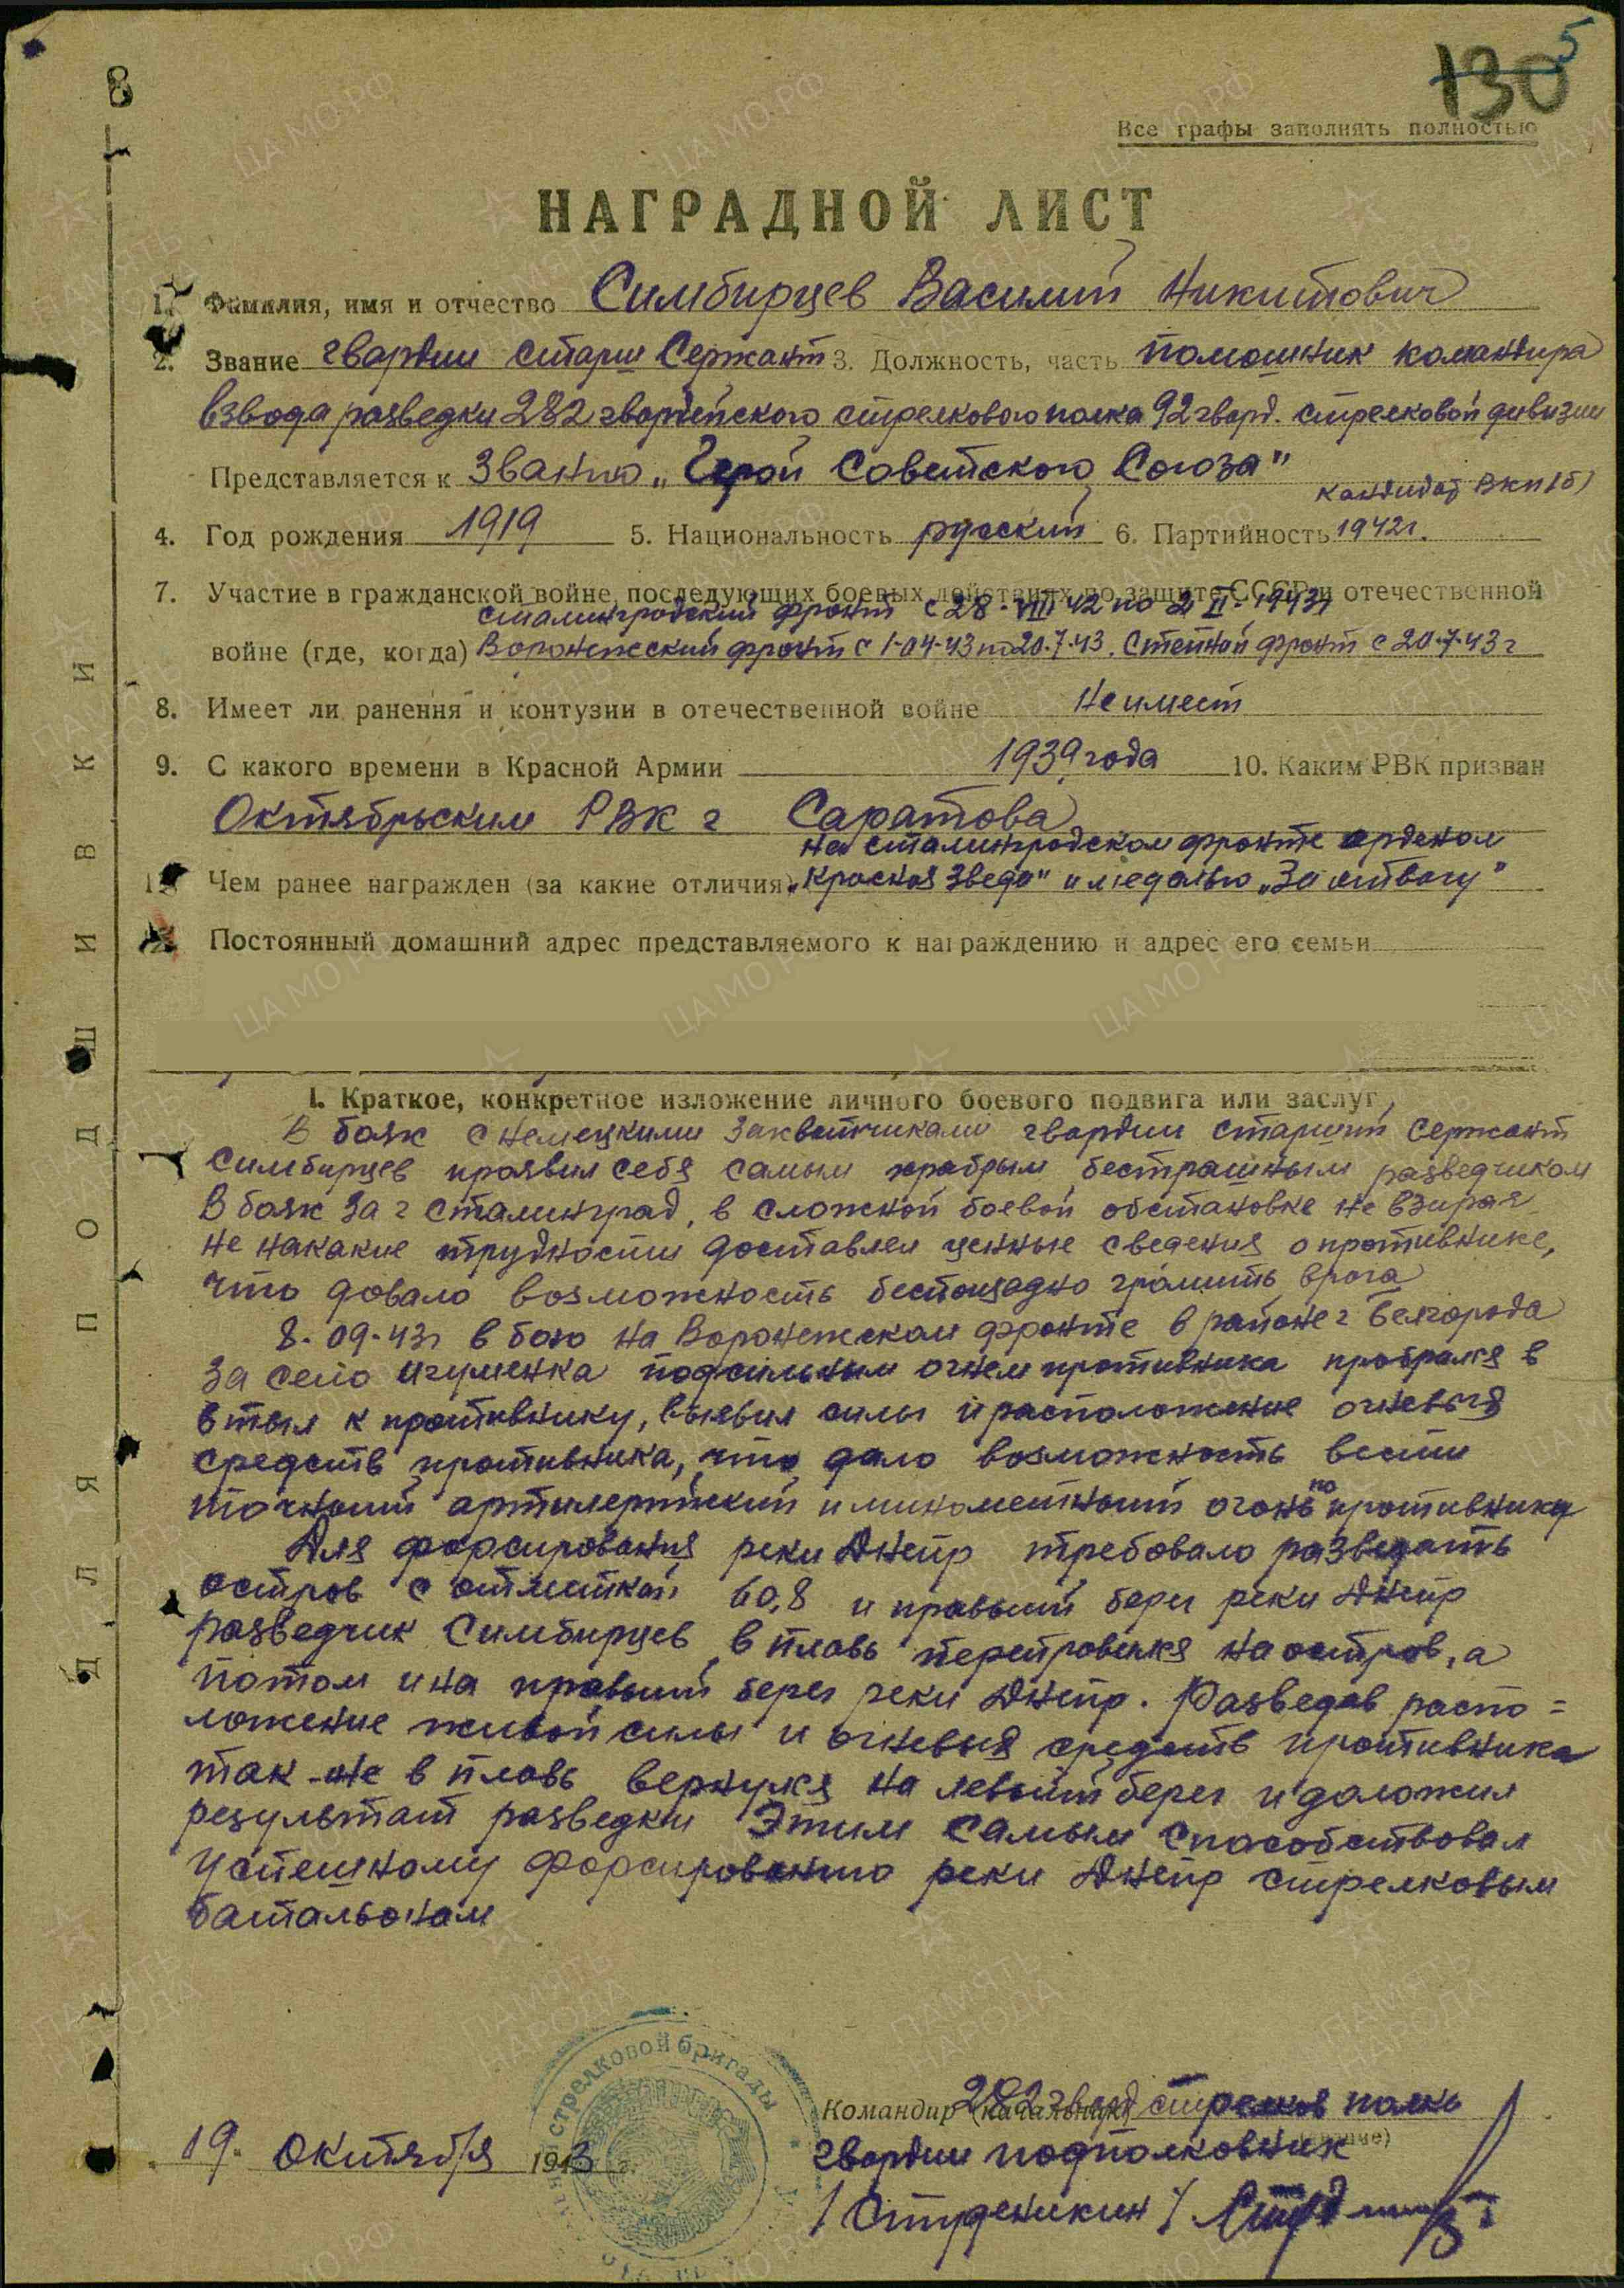 5
130
8
Все графы заполнять полностью
НАГРАДНОЙ ЛИСТ
1. Фамилия, имя и отчество Симбирцев Василий Никитович
2. Звание гвардии старш Сержант 3. Должность, часть помошник командира
взвода разведки 282 гвардейского стрелкового полка 92 гвард. стрелковой дивизии
Представляется к Званию „Герой Советского Союза"
кандидат ВКП(б)
4. Год рождения 1919 5. Национальность русский 6. Партийность 1942г.
7. Участие в гражданской войне, последующих боевых действиях по защите СССР и отечественной
Сталинградский фронт с 28-VIII 42 по 2 II-1943г
войне (где, когда) Воронежский фронт с 1-04-43 по 20.7.43. Степной фронт с 20.7.43 г
8. Имеет ли ранения и контузии в отечественной войне Не имеет
9. С какого времени в Красной Армии 1939 года 10. Каким РВК призван
Октябрьским РВК г Саратова
на сталинградском фронте орденом
Чем ранее награжден (за какие отличия) „Красная Зведа" и медалью „За отвагу"
Постоянный домашний адрес представляемого к награждению и адрес его семьи
ДЛЯ ПОДШИВКИ
I. Краткое, конкретное изложение личного боевого подвига или заслуг
В боях с немецкими захватчиками гвардии старший Сержант
Симбирцев проявил себя самым храбрым, бестрашным разведчиком
В боях за г Сталинград, в сложной боевой обстановке не взирая
не накакие трудности доставлял ценные сведения о противнике,
что довало возможность беспощадно громить врага
8-09-43г в бою на Воронежском фронте в районе г Белгорода
за село Игуменка под сильным огнем противника пробрался в
в тыл к противнику, выявил силы и расположение огневых
средств противника, что дало возможность вести
точный артилерийский и минометный огонь по противнику
Для форсирования реки Днепр требовало разведать
остров с отметкой 60,8 и правый берег реки Днепр
разведчик Симбирцев в плавь переправился на остров, а
потом и на правый берег реки Днепр. Разведав распо=
ложение живой силы и огневых средств противника
так-же в плавь вернулся на левый берег и доложил
результат разведки Этим самым способствовал
успешному форсированию реки Днепр стрелковым
батальоном
стрелковой бригады
Командир (начальник) 282 гвард стрелков полка
19. октября 1943 г.
гвардии подполковник
/ Студеникин /